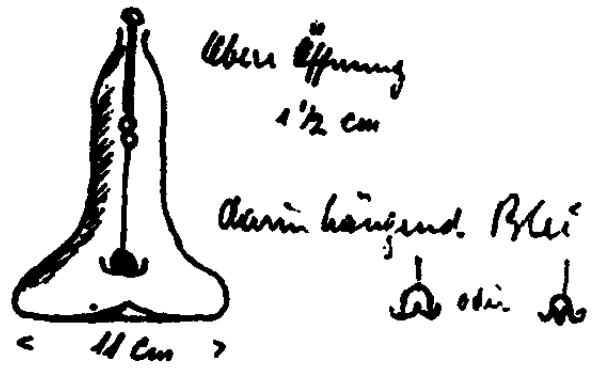 Oben Öffnung
1 1/2 cm
darin hängend. Blei
oder
< 11 cm >